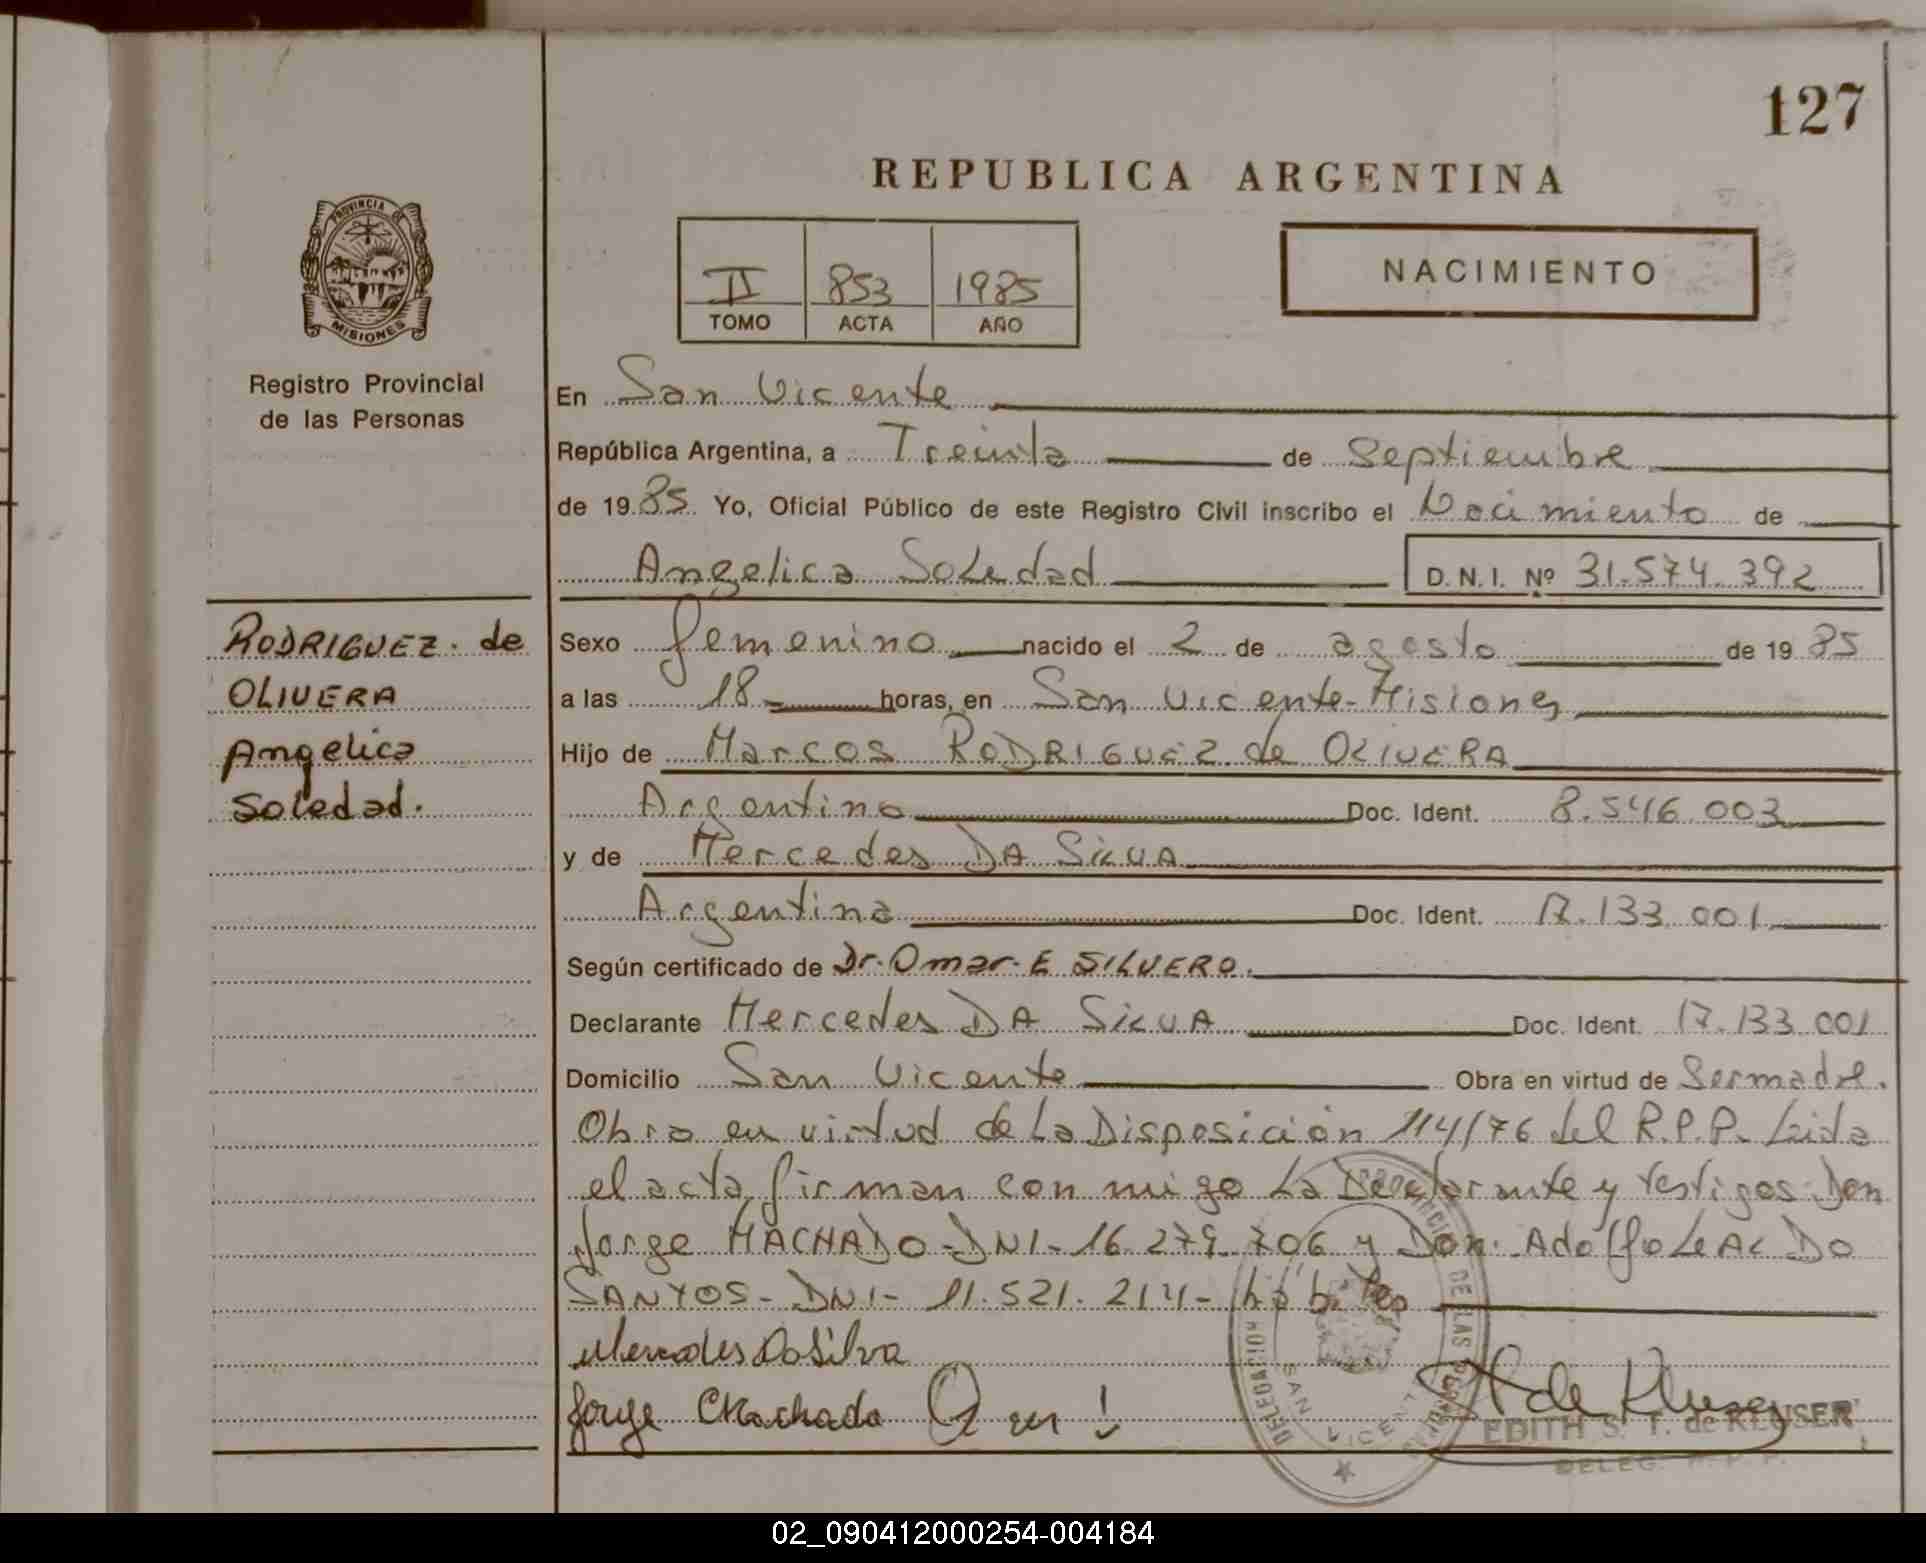 127
REPUBLICA ARGENTINA
PROVINCIA DE
MISIONES
Registro Provincial
de las Personas
II 853 1985
TOMO ACTA AÑO
NACIMIENTO
En San Vicente
República Argentina, a Treinta de Septiembre
de 1985 Yo, Oficial Público de este Registro Civil inscribo el Nacimiento de
Angelica Soledad D.N.I. Nº 31.574.392
RODRIGUEZ de
OLIVERA
Angelica
Soledad.
Sexo femenino nacido el 2 de agosto de 1985
a las 18 horas, en San Vicente-Misiones
Hijo de Marcos RODRIGUEZ de OLIVERA
Argentino Doc. Ident. 8.546.003
y de Mercedes DA SILVA
Argentina Doc. Ident. 17.133.001
Según certificado de Dr. Omar E SILVERO.
Declarante Mercedes DA SILVA Doc. Ident. 17.133.001
Domicilio San Vicente Obra en virtud de Sermadre.
Obra en virtud de La Disposición 114/76 del R.P.P. Leida
el acta, firman con migo La Declarante y testigos Don
Jorge MACHADO-DNI-16.279.706 y Don Adolfo LEAL DO
SANTOS-DNI-11.521.214-hábiles
Mercedes Da Silva
Jorge Machado
DELEGACION SAN VICENTE
DE LAS
EDITH S. T. de KLUSER
DELEG. R.P.P.
02_090412000254-004184